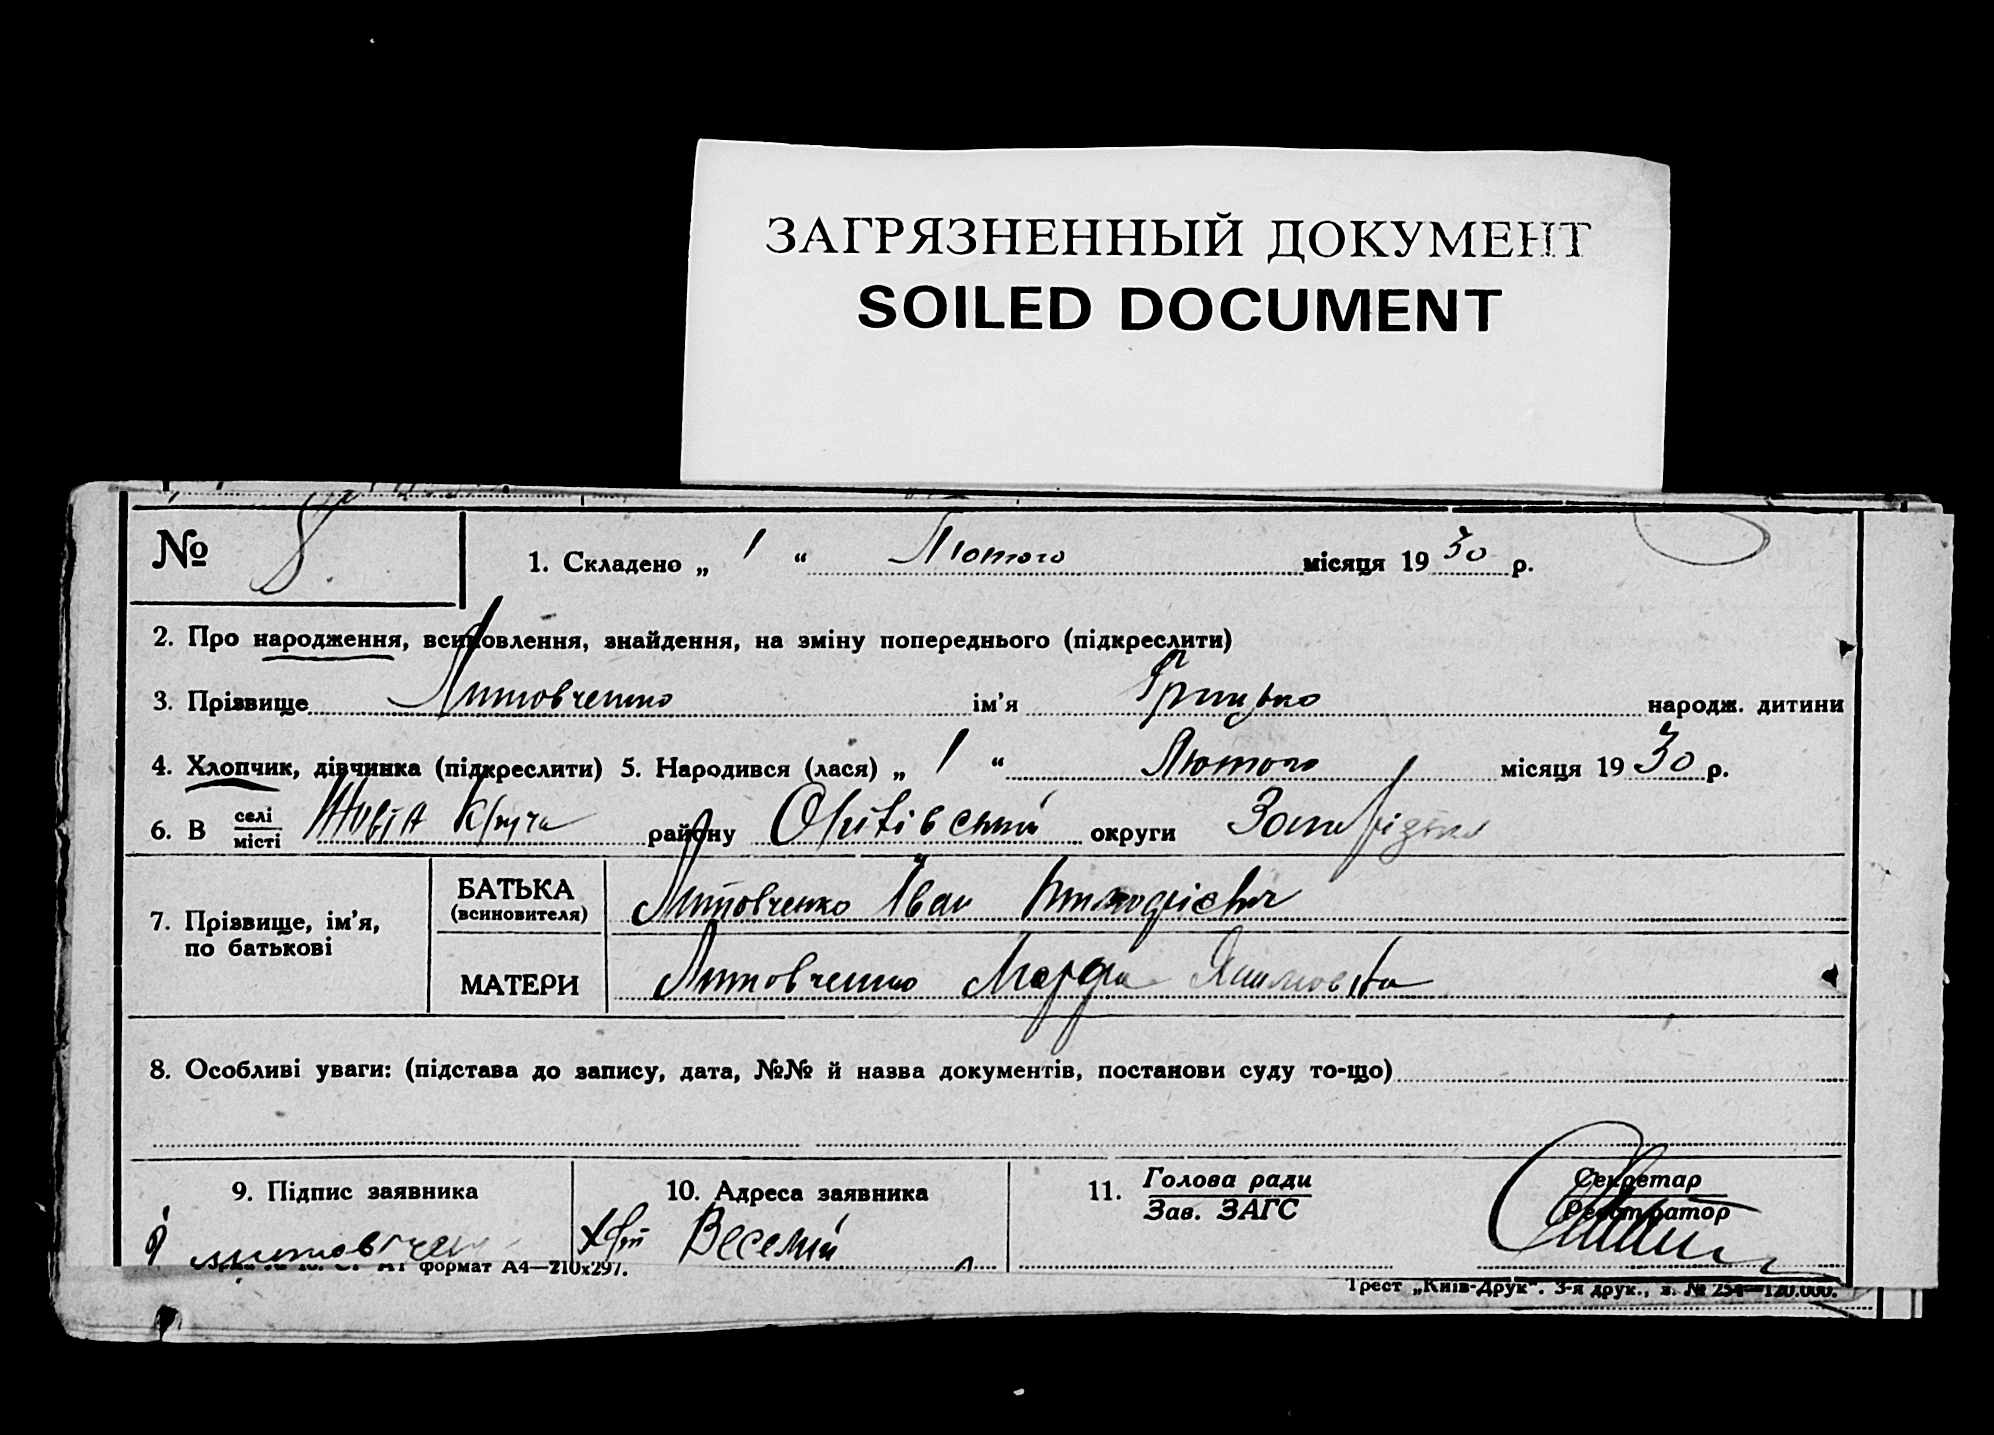 ЗАГРЯЗНЕННЫЙ ДОКУМЕНТ
SOILED DOCUMENT
№ 8
1. Складено „ 1 “ Лютого місяця 1930 р.
2. Про народження, всиновлення, знайдення, на зміну попереднього (підкреслити)
3. Прізвище Литовченко ім’я Грицько народж. дитини
4. Хлопчик, дівчинка (підкреслити) 5. Народився (лася) „ 1 “ Лютого місяця 1930 р.
6. В селі Круча району округи
місті
7. Прізвище, ім’я, по батькові
БАТЬКА (всиновителя) Литовченко Іван
МАТЕРИ Литовченко Марфа Якимовна
8. Особливі уваги: (підстава до запису, дата, №№ й назва документів, постанови суду то-що)
9. Підпис заявника
10. Адреса заявника
11. Голова ради
Зав. ЗАГС
Секретар
Реєстратор
Веселий
формат А4—210x297.
Трест „Київ-Друк“. 3-я друк., з. № 254—120.000.